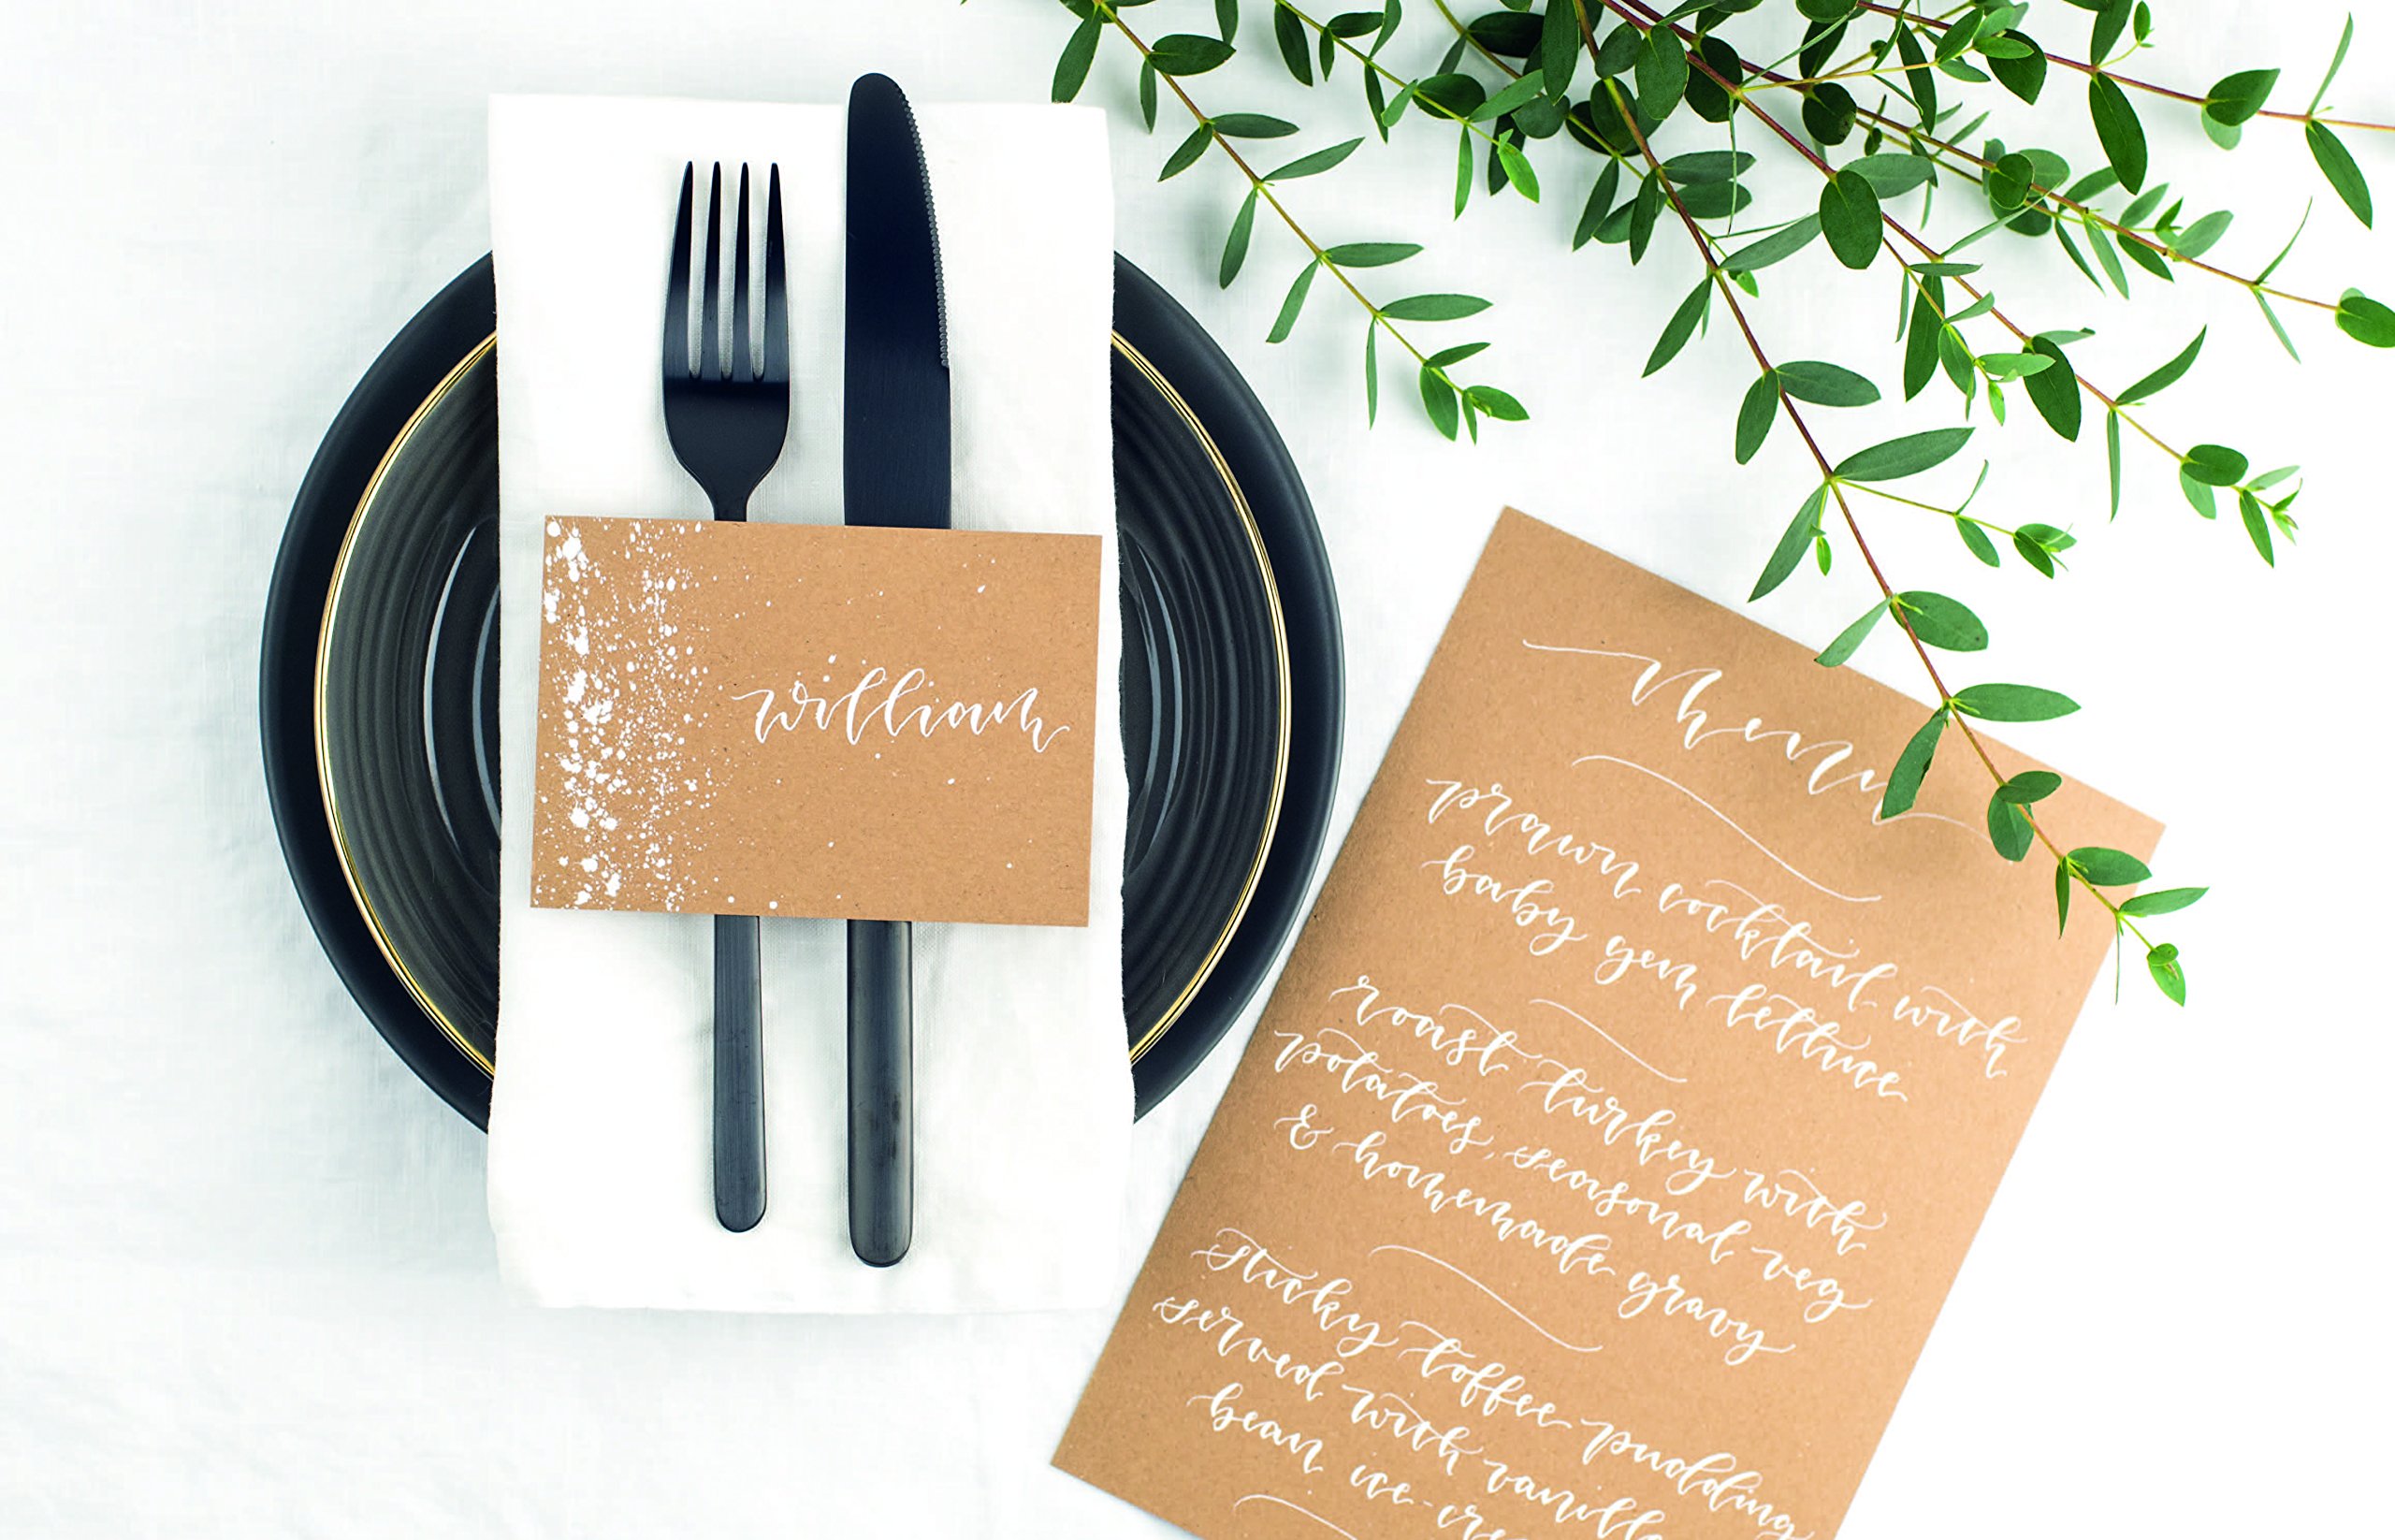 william
menu
prawn cocktail with
baby gem lettuce
roast turkey with
potatoes, seasonal veg
& homemade gravy
sticky toffee pudding
served with vanilla
bean ice-cre